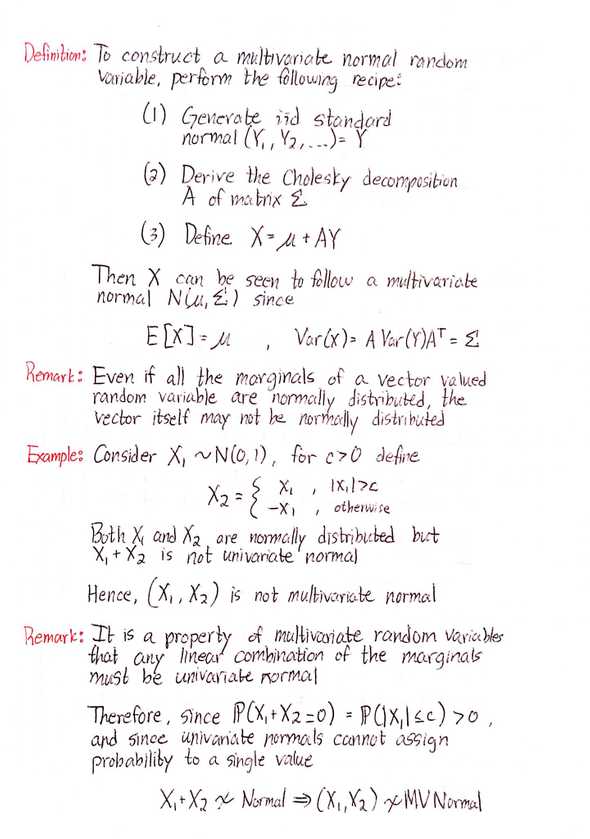 Definition: To construct a multivariate normal random
variable, perform the following recipe:
(1) Generate iid standard
normal (Y₁, Y₂, ...) = Y
(2) Derive the Cholesky decomposition
A of matrix Σ
(3) Define X = μ + AY
Then X can be seen to follow a multivariate
normal N(μ, Σ) since
E[X] = μ , Var(X) = A Var(Y)Aᵀ = Σ
Remark: Even if all the marginals of a vector valued
random variable are normally distributed, the
vector itself may not be normally distributed
Example: Consider X₁ ~ N(0,1), for c>0 define
X₂ = { X₁ , |X₁|>c
-X₁ , otherwise
Both X₁ and X₂ are normally distributed but
X₁ + X₂ is not univariate normal
Hence, (X₁, X₂) is not multivariate normal
Remark: It is a property of multivariate random variables
that any linear combination of the marginals
must be univariate normal
Therefore, since ℙ(X₁+X₂=0) = ℙ(|X₁|≤c) > 0 ,
and since univariate normals cannot assign
probability to a single value
X₁+X₂ ≁ Normal ⇒ (X₁,X₂) ≁ MV Normal